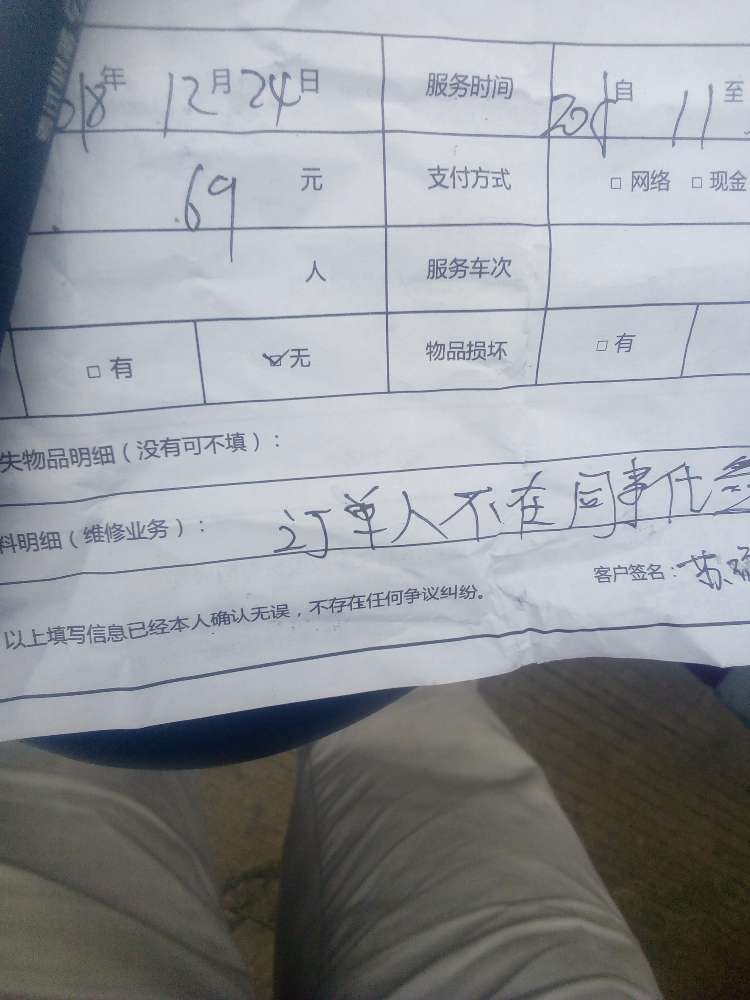 018年 12月24日 服务时间 自 11 至
.69 元 支付方式 □ 网络 □ 现金
人 服务车次
□ 有 ☑无 物品损坏 □ 有
失物品明细（没有可不填）：
料明细（维修业务）： 订单人不在同事代签
客户签名：苏
以上填写信息已经本人确认无误，不存在任何争议纠纷。